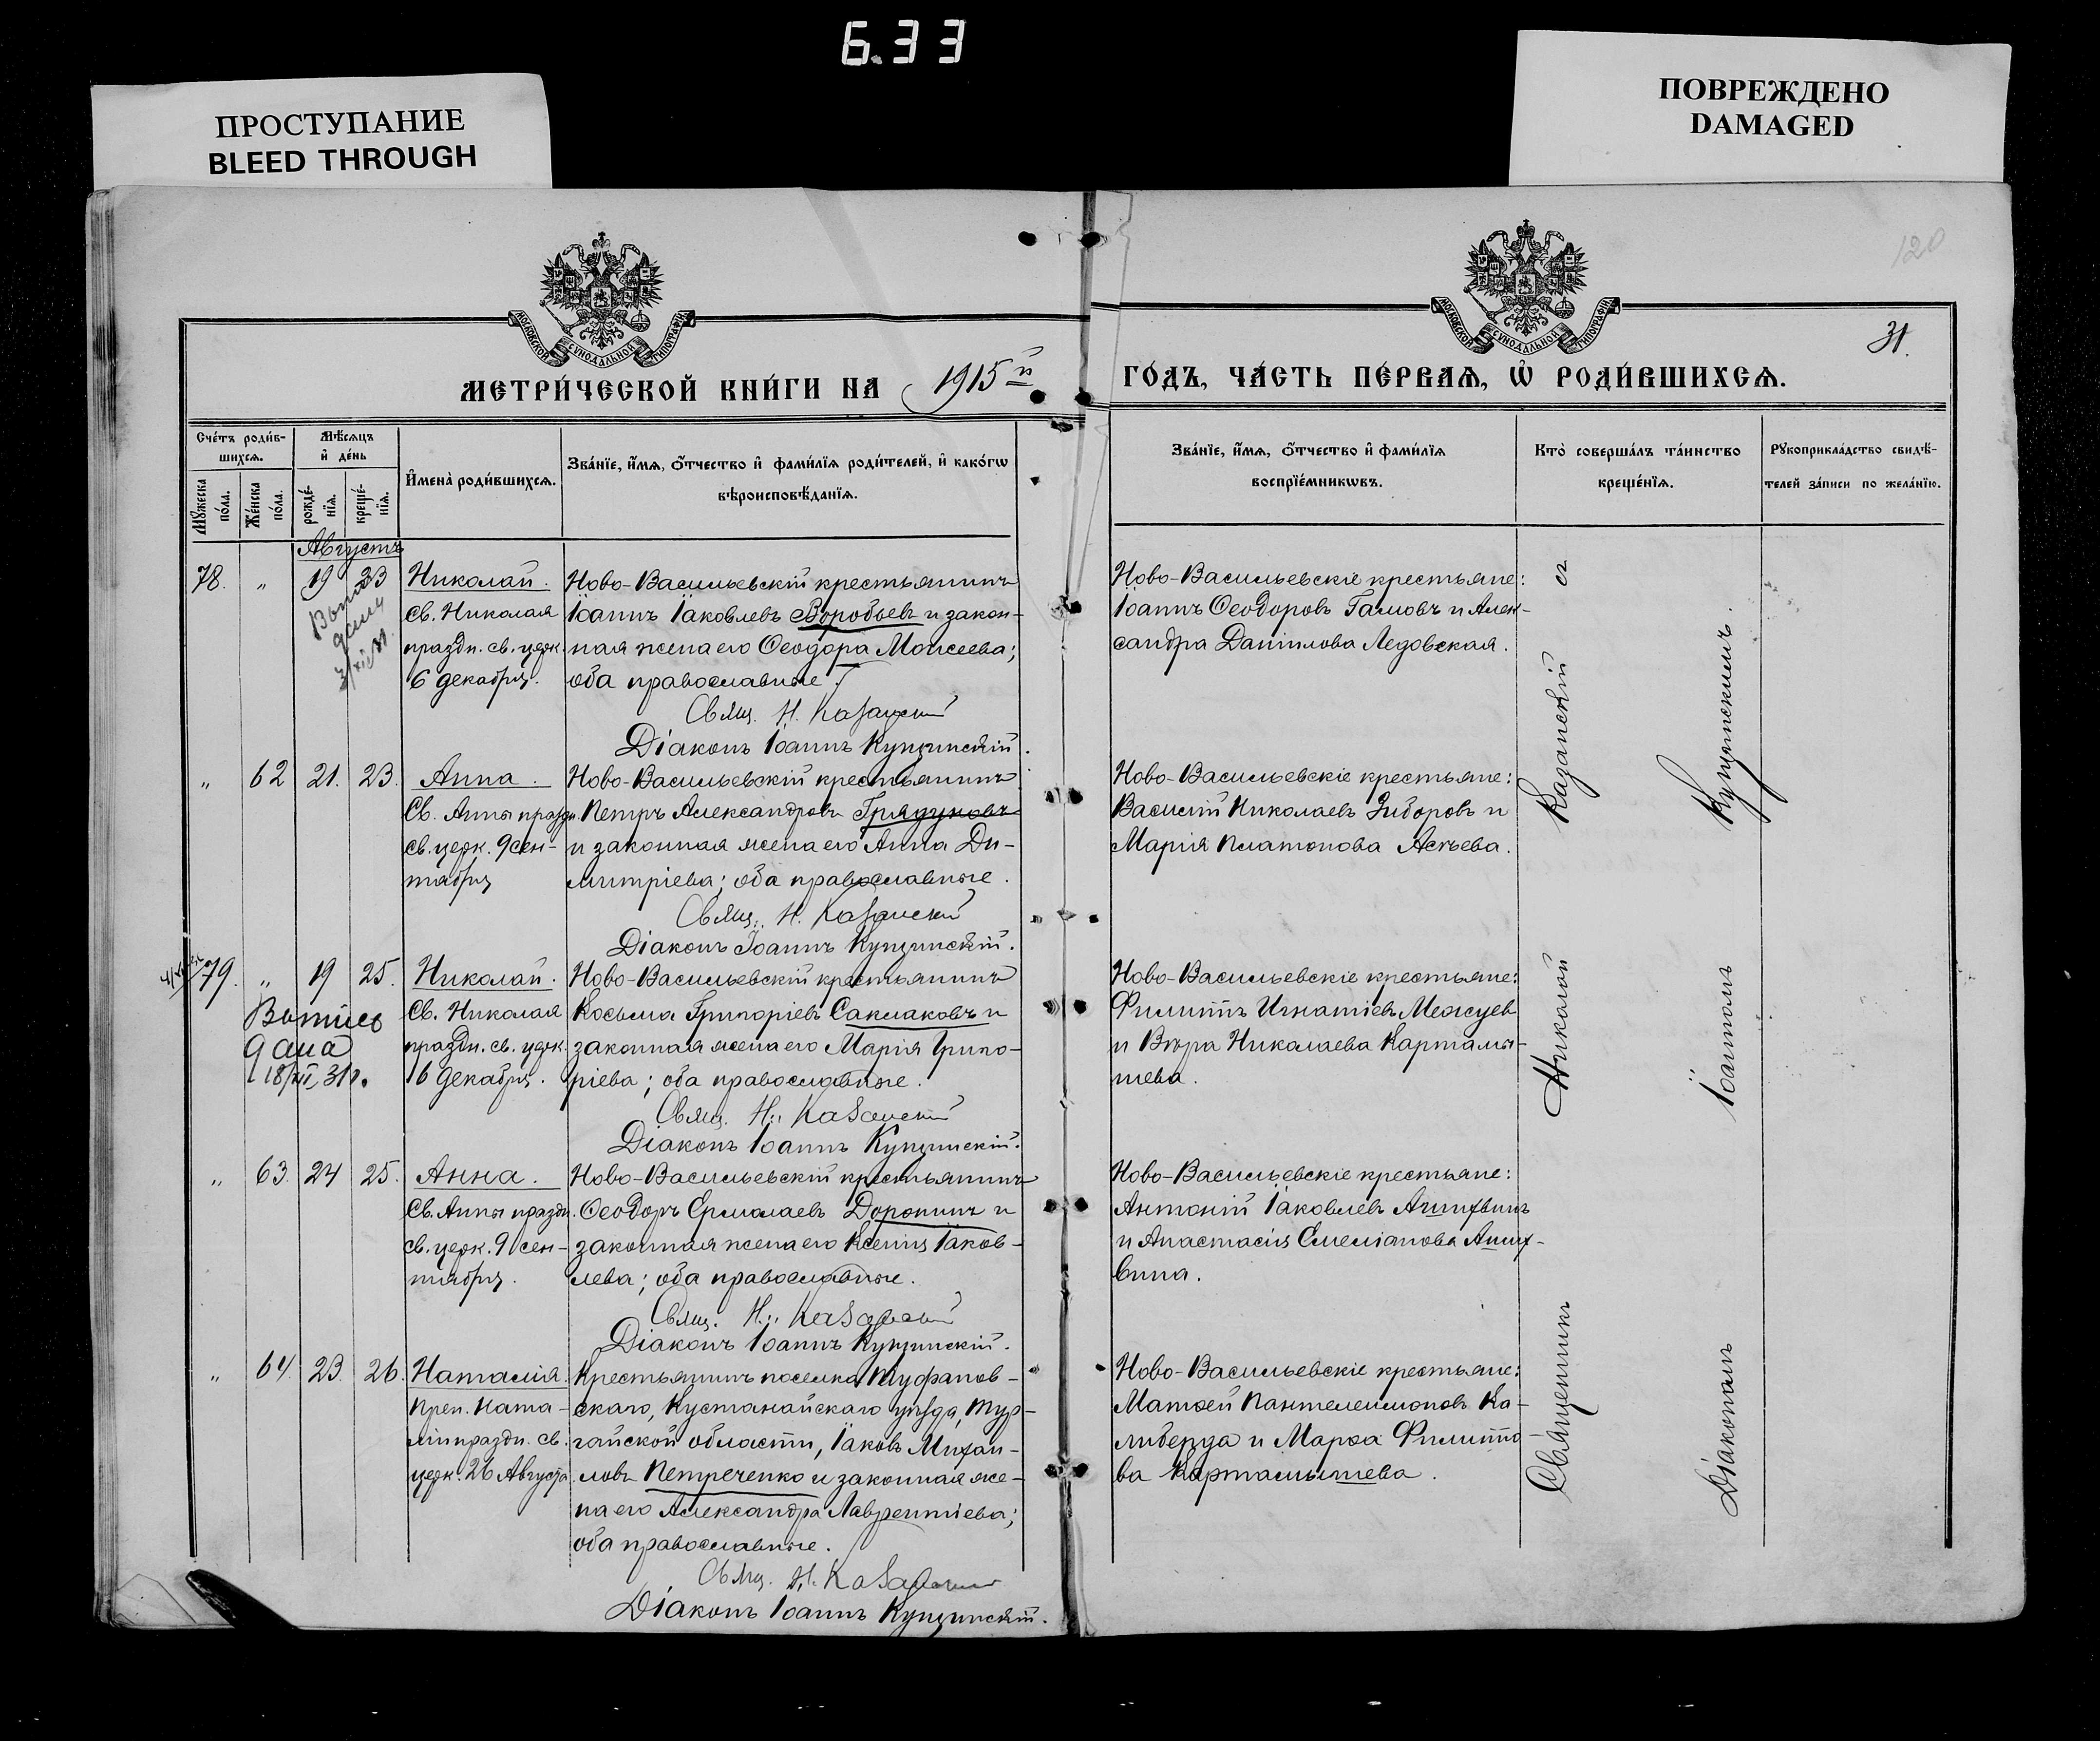 6.33
ПРОСТУПАНИЕ
BLEED THROUGH
ПОВРЕЖДЕНО
DAMAGED
МОСКОВСКОЙ СѴНОДАЛЬНОЙ ТИПОГРАФІИ
МОСКОВСКОЙ СѴНОДАЛЬНОЙ ТИПОГРАФІИ
120
31.
МЕТРИ́ЧЕСКОЙ КНИ́ГИ НА 1915й ГО́ДЪ, ЧА́СТЬ ПЕ́РВАѦ, Ѡ҆ РОДИ́ВШИХСѦ.
Сче́тъ роди́в-
шихсѧ.
Мѣ́сѧцъ
и҆ де́нь
Мꙋ́жеска
по́ла.
Же́нска
по́ла.
рожде́-
нїѧ.
креще́-
нїѧ.
И҆мена̀ роди́вшихсѧ.
Зва́нїе, и҆́мѧ, ѻ҆́тчество и҆ фами́лїѧ роди́телей, и҆ како́гѡ
вѣроисповѣ́данїѧ.
Зва́нїе, и҆́мѧ, ѻ҆́тчество и҆ фами́лїѧ
воспрїе́мникѡвъ.
Кто̀ соверша́лъ та́инство
креще́нїѧ.
Рꙋкоприкла́дство свидѣ́-
телей за́писи по жела́нїю.
Августъ
78. " 19 23 Николай.
Св. Николая
праздн. св. церк.
6 декабря.
Ново-Васильевскій крестьянинъ
Іоаннъ Іаковлевъ Воробьев и закон-
ная жена его Ѳеодора Моисеева;
оба православные.
Свящ. Н. Казанский
Діаконъ Іоаннъ Купчинскій.
Ново-Васильевскіе крестьяне:
Іоаннъ Ѳеодоровъ Гамовъ и Алек-
сандра Даніилова Ледовская.
" 62 21. 23. Анна.
Св. Анны праздн.
св. церк. 9 сен-
тября
Ново-Васильевскій крестьянинъ
Петръ Александровъ Грядуновъ
и законная жена его Анна Ди-
митріева; оба православные.
Свящ. Н. Казанский
Діаконъ Іоаннъ Купчинскій.
Ново-Васильевскіе крестьяне:
Василій Николаевъ Зиборовъ и
Марія Платонова Асѣева.
79. " 19 25. Николай.
Выпись
дана
18/XII 31г.
Св. Николая
праздн. св. церк.
6 декабря.
Ново-Васильевскій крестьянинъ
Косьма Григоріевъ Саклаковъ и
законная жена его Марія Григо-
ріева; оба православные.
Свящ. Н. Казанский
Діаконъ Іоаннъ Купчинскій.
Ново-Васильевскіе крестьяне:
Филиппъ Игнатіевъ Межуев
и Вѣра Николаева Карталы-
шева.
" 63. 24 25. Анна.
Св. Анны праздн.
св. церк. 9 сен-
тября.
Ново-Васильевскій крестьянинъ
Ѳеодоръ Ермолаевъ Доронинъ и
законная жена его Ксенія Іаков-
лева; оба православные.
Свящ. Н. Казанский
Діаконъ Іоаннъ Купчинскій.
Ново-Васильевскіе крестьяне:
Антоній Іаковлевъ
и Анастасія Емеліанова
вина.
" 64. 23. 26. Наталія.
Преп. Ната-
ліи праздн. св.
церк. 26 Августа
Крестьянинъ поселка Туфанов-
скаго, Кустанайскаго уѣзда, Тур-
гайской области, Іаковъ Михаи-
ловъ Петреченко и законная же-
на его Александра Лаврентіева;
оба православные.
Свящ. Н. Казанский
Діаконъ Іоаннъ Купчинскій.
Ново-Васильевскіе крестьяне:
Матѳей Пантелеимоновъ Ка-
либерда и Марѳа Филиппо-
ва Карталышева.
Священникъ Николай Казанскій съ
Діакономъ Іоанномъ Купчинскимъ.